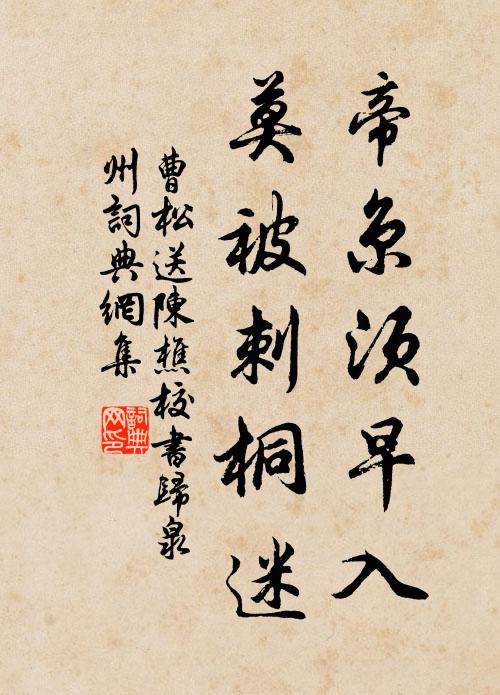 帝京須早入
莫被刺桐迷
曹松送陳樵校書歸泉
州詞典網集
詞典网印